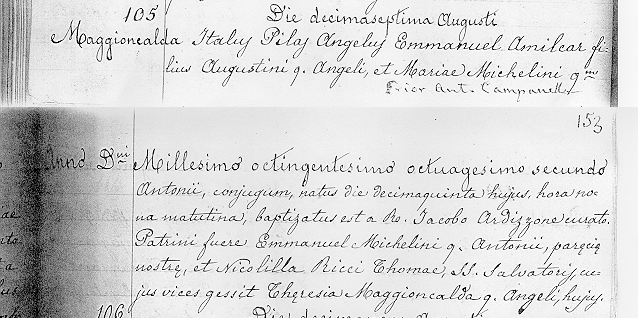 105
Die decimaseptima Augusti
Maggioncalda Italus Pilas Angelus Emmanuel Amilcar fi-
lius Augustini q. Angeli, et Mariae Michelini q.m
Prior Ant. Campanella
153
Anno Dni Millesimo octingentesimo octuagesimo secundo
Antonii, conjugum, natus die decimaquinta hujus, hora no-
na matutina, baptizatus est a Ro. Jacobo Ardizzone curato.
Patrini fuere Emmanuel Michelini q. Antonii, paręcię
nostrę, et Nicolilla Ricci Thomae, SS. Salvatoris cu-
jus vices gessit Theresia Maggioncalda q. Angeli, hujus.
106